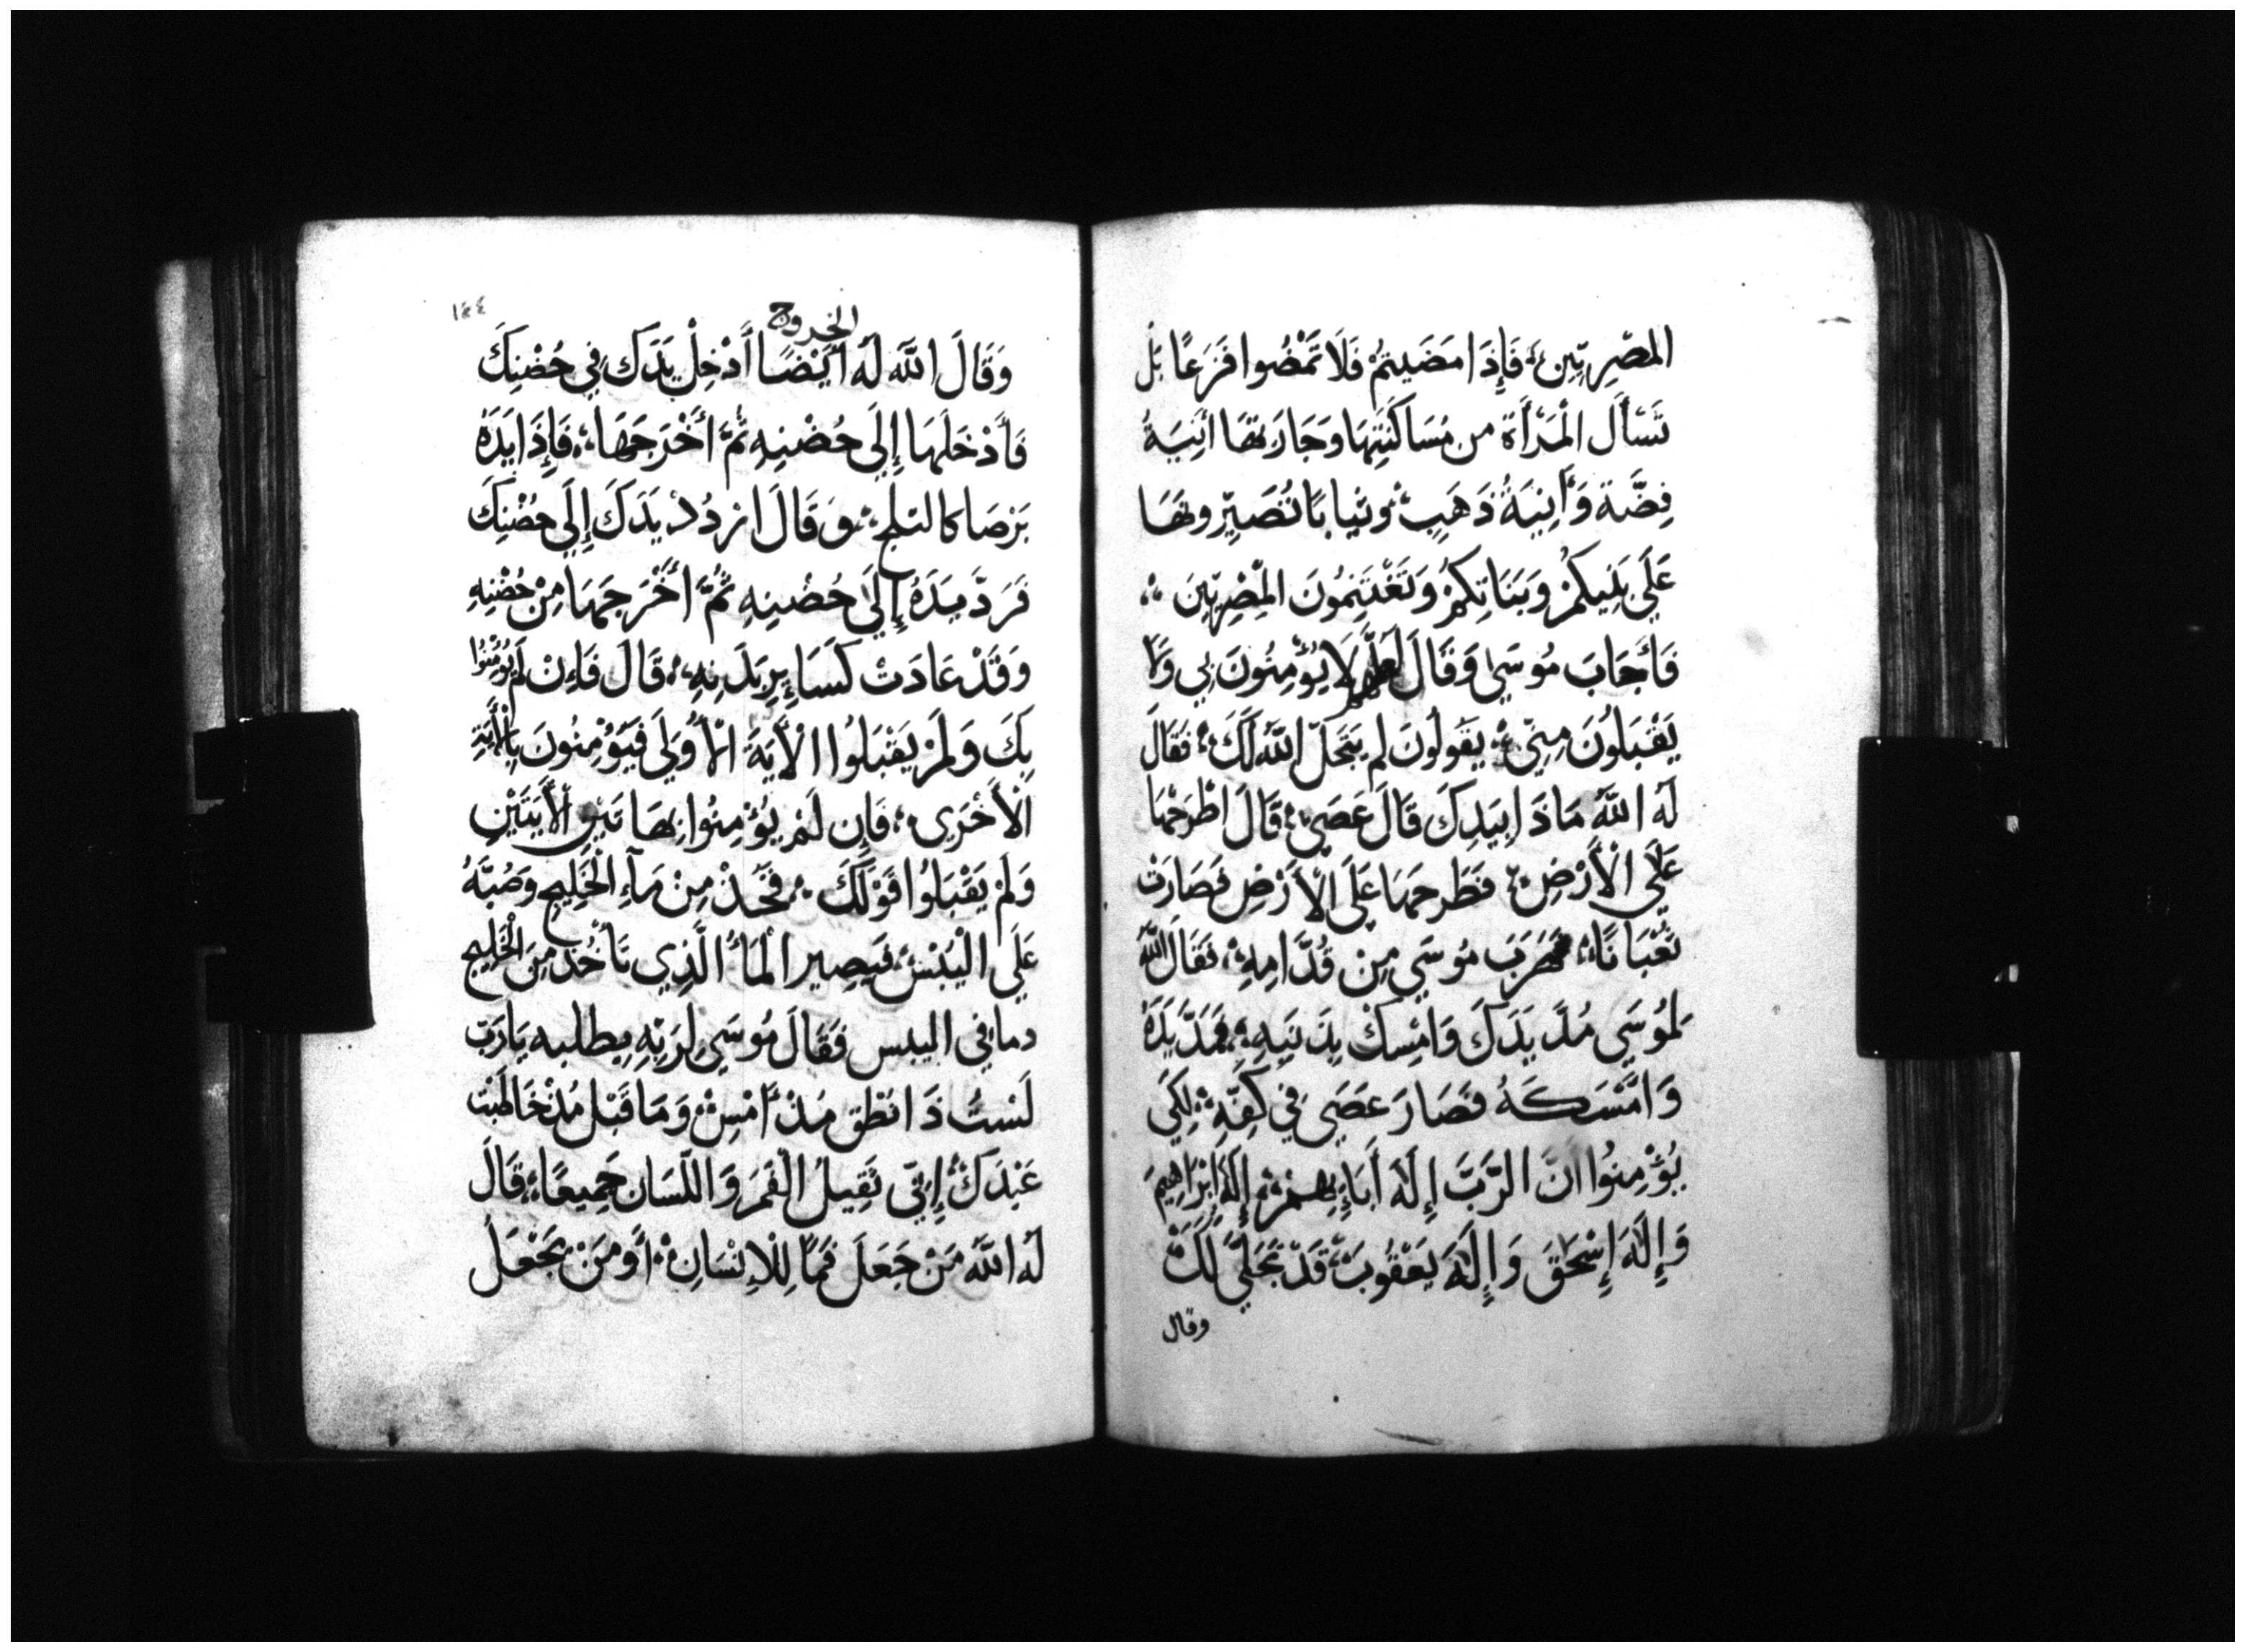 المصْرِيّينَ، فَإِذَا مَضَيتمْ فَلَا تَمْضُوا فَرَعًا بَل
تَسْأَل الْمَرْأَة من مُسَاكَنَتِهَا وَجَارَتهَا انِيَةُ
فِضَّة وَأَنِيَةُ ذَهَبٍ وثيابًا تُصَيِّرونهَا
عَلَى بَنِيكُمْ وَبَنَاتِكُمْ وَتَغْتَنِمُونَ الْمِصْرِيِّينَ
فَأَجَابَ مُوسَى وَقَالَ لعلهم لَا يُؤمِنُونَ بِي وَلَا
يَقْبَلُونَ مِنِّي يَقُولُونَ لم يَتَجَلّ اللَّهُ لَكَ فَقَالَ
لَه اللَّهُ مَا ذَا بِيَدِكَ قَالَ عَصَى قَالَ اطْرَحْهَا
عَلَى الْأَرْضِ فَطَرحهَا عَلَى الْأَرْضِ فَصَارَتْ
ثُعْبَانًا، فهَرَبَ مُوسَى مِنْ قُدَّامِهِ، فَقَالَ اللَّهُ
لمُوسَى مُدَّ يَدَكَ وَامْسِكْ بِذَنَبِهِ فَمَدَّ يَدَهُ
وَامْسَكَهُ فَصَارَ عَصَى فِي كَفِّهِ لِكَى
يُؤْمِنُوا انَّ الرَّبَّ إِلَهُ أَبَاءِهِمْ إِلَهُ ابْرَاهِيمَ
وَإِلَهَ إِسْحَقَ وَإِلَهَ يَعْقُوبَ قَدْ تَجَلَّى لَكَ
وقال
الخروج
١٤٤
وَقَالَ اللَّه لَه ايْضًا أَدْخِلْ يَدَك فِي حُضْنِكَ
فَأَدْخَلَهَا إِلَى حُضْنِهِ ثُمَّ أَخْرَجَهَا، فَإِذَا يَدَهُ
بَرْصَا كالثلج، وَقَالَ ارْدُدْ يَدَكَ إِلَى حُضْنِكَ
فَرَدَّ يَدَهُ إِلَى حُضْنِهِ ثُمَّ أَخْرَجَهَا مِنْ حُضْنِهِ
وَقَدْ عَادَتْ كَسَاءِرِ بَدَنِهِ، قَالَ فَاءِنْ لَم يُؤْمِنُوا
بِكَ وَلَمْ يَقْبَلُوا الْأَيَةَ الْأُوْلَى فَيُؤْمِنُونَ بِالْأَيَةِ
الْأُخْرَى، فَإِن لَمْ يُؤْمِنُوا بِهَاتَيْنِ الْأَيَتَيْنِ
وَلَمْ يَقْبَلُوا قَوْلَكَ، فَخُذْ مِنْ مَآءِ الْخَلِيجِ وَصُبَّهُ
عَلَى الْيُبْسْ، فَيَصِير الْمَاُ الَّذِي تَأْخُذ مِنَ الْخَلِيجِ
دما في اليبس فَقَالَ مُوسَى لِرَبِّهِ بطلبه يَا رَبّ
لَسْتُ ذَا نطْق مُذْ أَمْسِ وَمَا قَبْل مُذْ خَاطَبْت
عَبْدَكْ إِنِّي ثَقِيلُ الْفَمَ وَاللّسَان جَمِيعًا، قَالَ
لَه اللَّهُ مَنْ جَعَلَ فَمًا لِلْاِنْسَانِ، أَو مَنْ يَجْعَلُ